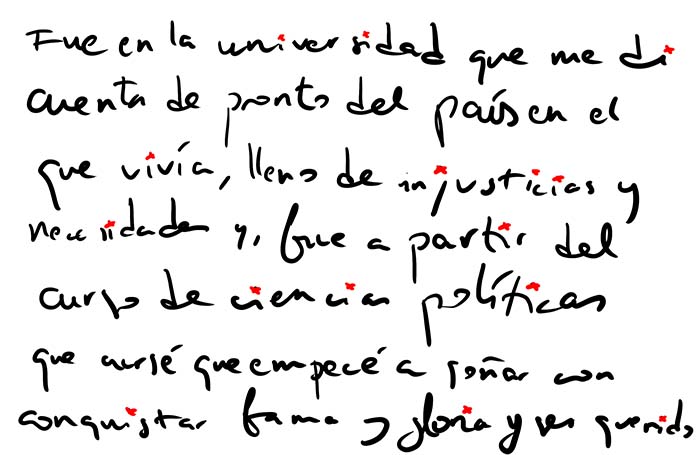 Fue en la universidad que me di
cuenta de pronto del país en el
que vivía, lleno de injusticias y
necesidades y, fue a partir del
curso de ciencias políticas
que cursé que empecé a soñar con
conquistar fama y gloria y ser querido